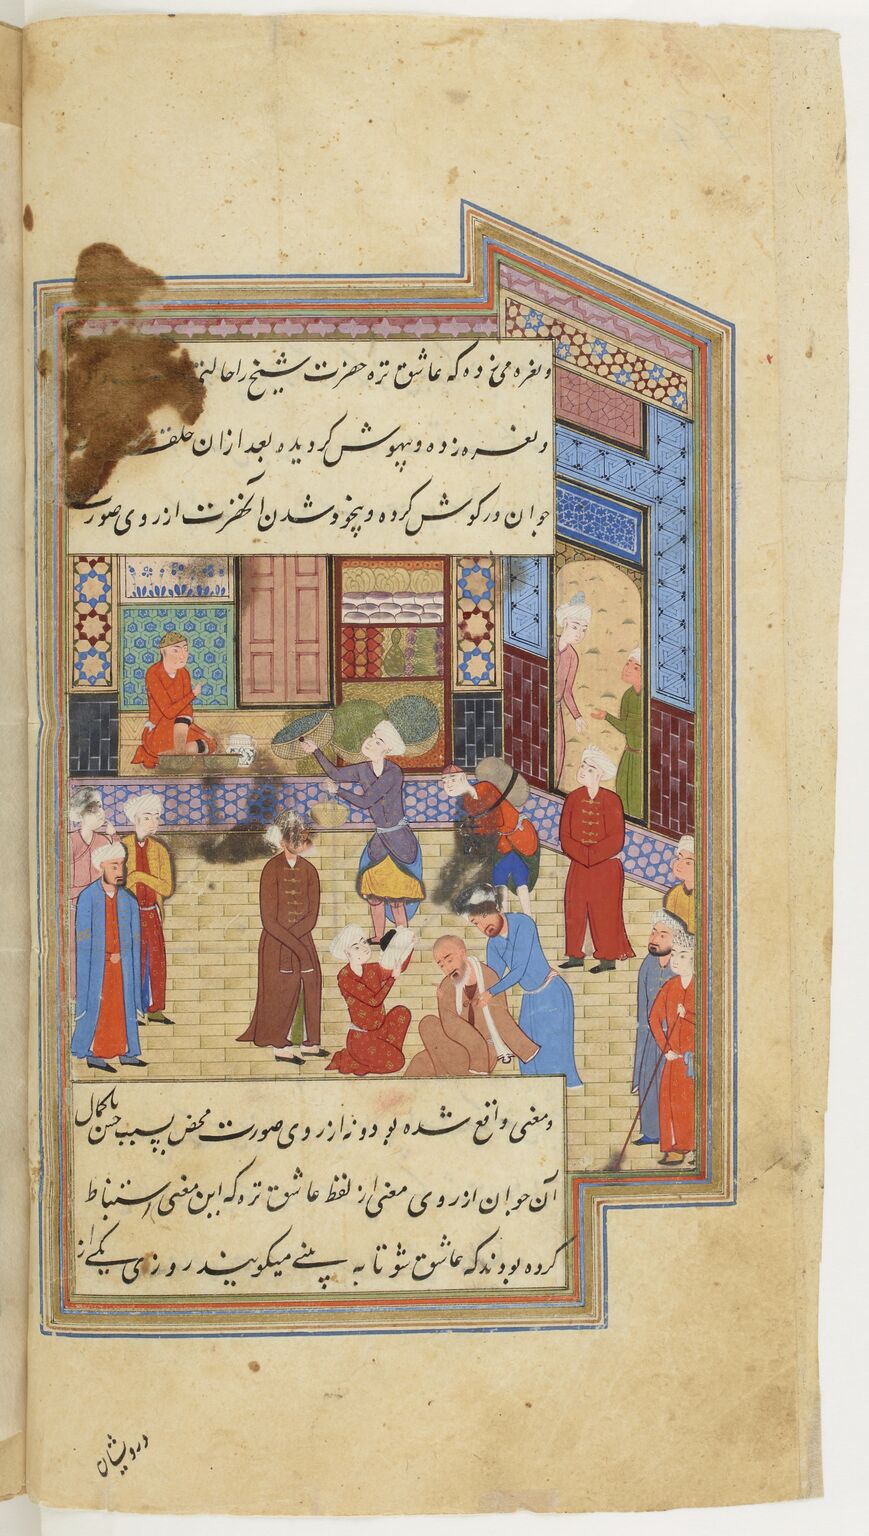 ونعره می زده که عاشق تره حضرت شیخ را حالتی
ونعره زده و بیهوش کردیده بعد ازان خلق
جوان در کوش کرده و بیخود شدن آنحضرت از روی صورت
ومعنی واقع شده بود و نه از روی صورت محض بسبب حسن باکمال
آن جوان از روی معنی از لفظ عاشق تره که این معنی استنباط
کرده بودند که عاشق شو تا به بینی میکویند روزی یکی از
درویشان